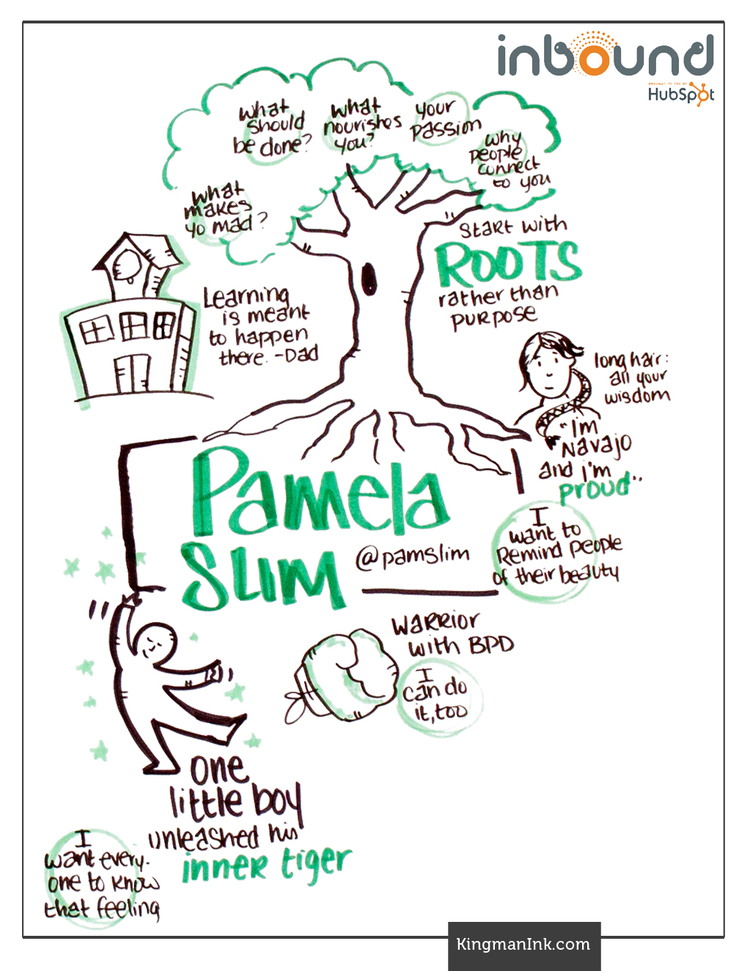 inbound
BROUGHT TO YOU BY
HubSpot
what
should
be done?
what
nourishes
you?
your
passion
why
people
connect
to you
what
makes
yo mad?
Start with
ROOTS
rather than
purpose
Learning
is meant
to happen
there. -Dad
long hair:
all your
wisdom
"I'm
Navajo
and i'm
proud"
Pamela
Slim
@pamslim
I
want to
Remind people
of their beauty
Warrior
with BPD
I
can do
it, too
one
little boy
unleashed his
inner tiger
I
want every-
one to know
that feeling
KingmanInk.com